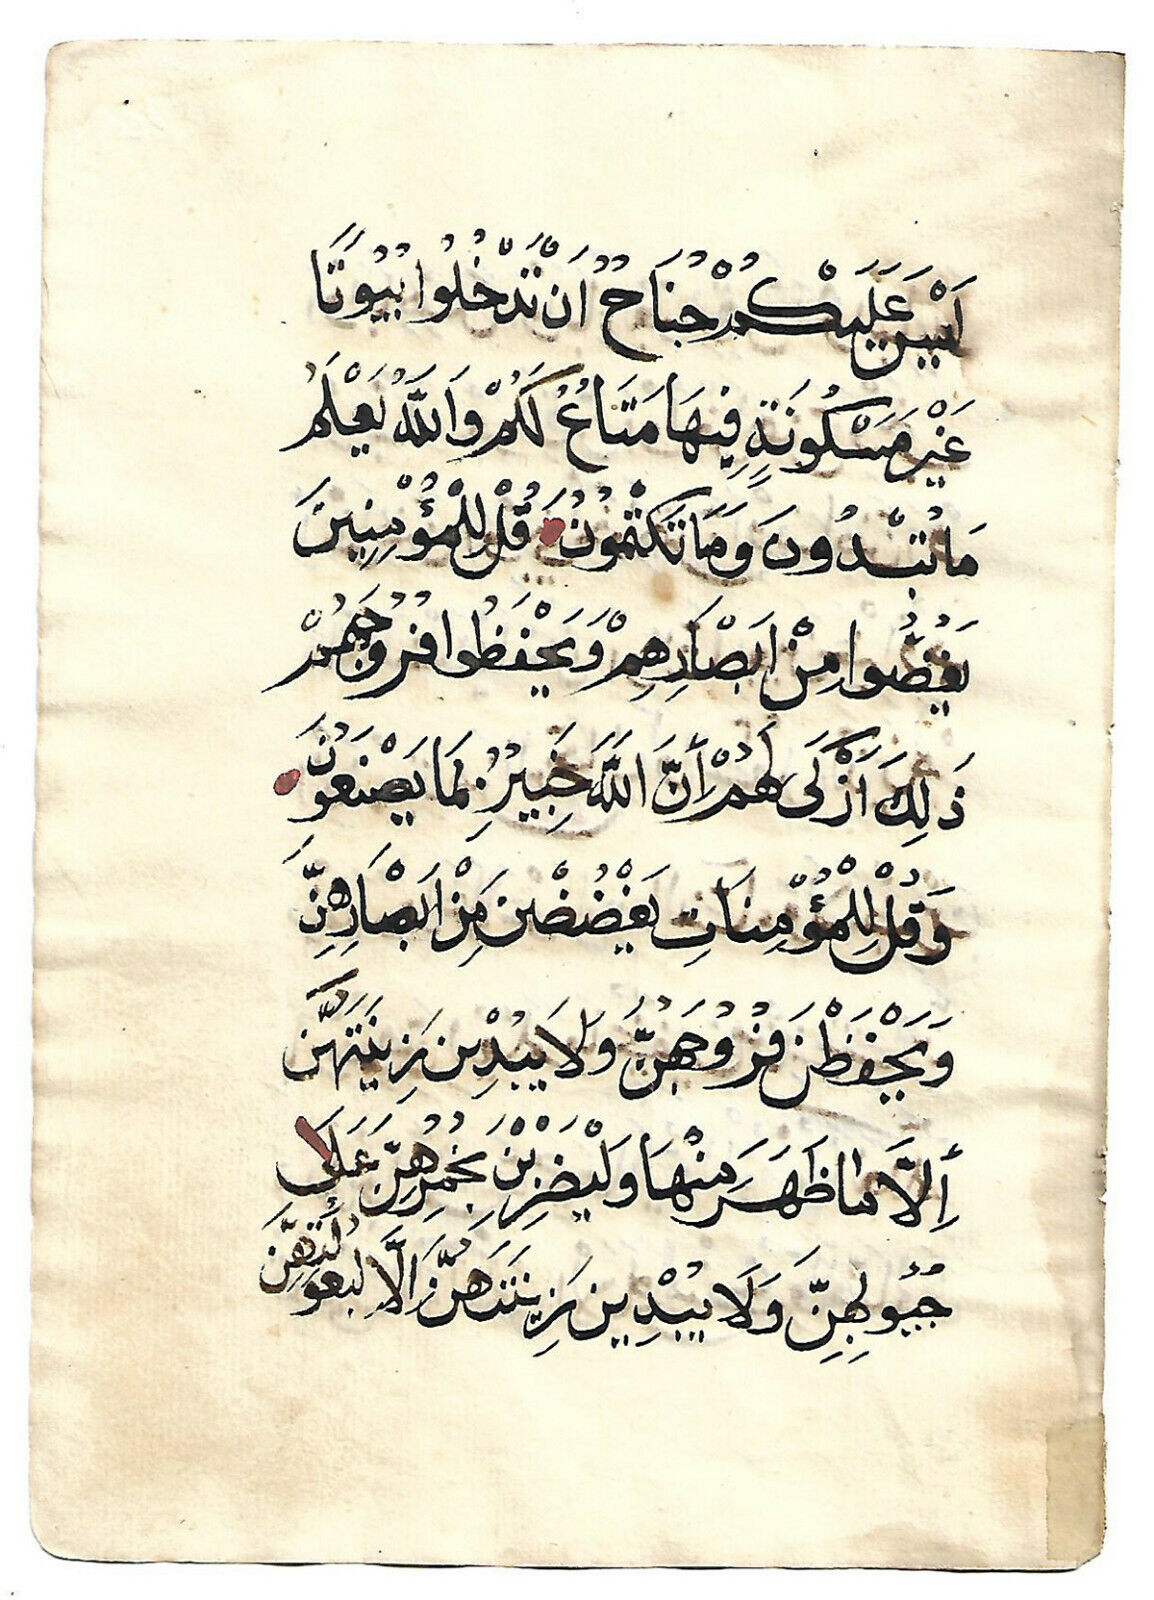 لَيْسَ عَلَيْكُمْ جُنَاحٌ اَنْ تَدْخُلُوا بُيُوتًا
غَيْرَ مَسْكُونَةٍ فِيهَا مَتَاعٌ لَكُمْ وَاللَّهُ يَعْلَمُ
مَا تُبْدُونَ وَمَا تَكْتُمُونَ قُلْ لِلْمُؤْمِنِينَ
يَغُضُّوا مِنْ اَبْصَارِهِمْ وَيَحْفَظُوا فُرُوجَهُمْ
ذَلِكَ اَزْكَى لَهُمْ إِنَّ اللَّهَ خَبِيرٌ بِمَا يَصْنَعُونَ
وَقُلْ لِلْمُؤْمِنَاتِ يَغْضُضْنَ مِنْ اَبْصَارِهِنَّ
وَيَحْفَظْنَ فُرُوجَهُنَّ وَلَا يُبْدِينَ زِينَتَهُنَّ
إِلَّا مَا ظَهَرَ مِنْهَا وَلْيَضْرِبْنَ بِخُمُرِهِنَّ عَلَى
جُيُوبِهِنَّ وَلَا يُبْدِينَ زِينَتَهُنَّ اِلَّا لِبُعُولَتِهِنَّ